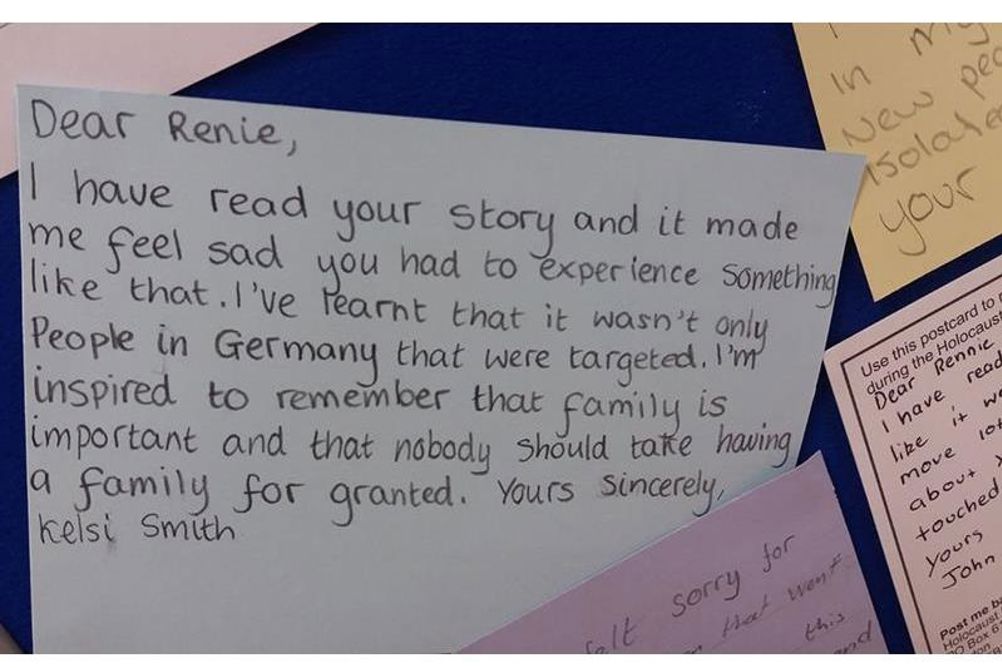 Dear Renie,
I have read your story and it made
me feel sad you had to experience something
like that. I've learnt that it wasn't only
People in Germany that were targeted. I'm
inspired to remember that family is
important and that nobody should take having
a family for granted. Yours Sincerely,
Kelsi Smith
In my
New
isolate
your
Use this postcard to
during the Holocaust
Dear Rennie
I have read
like it
move lot
about
touched
Yours
John
Post me
Holocaust
Box 6
sorry for
that went
this
and